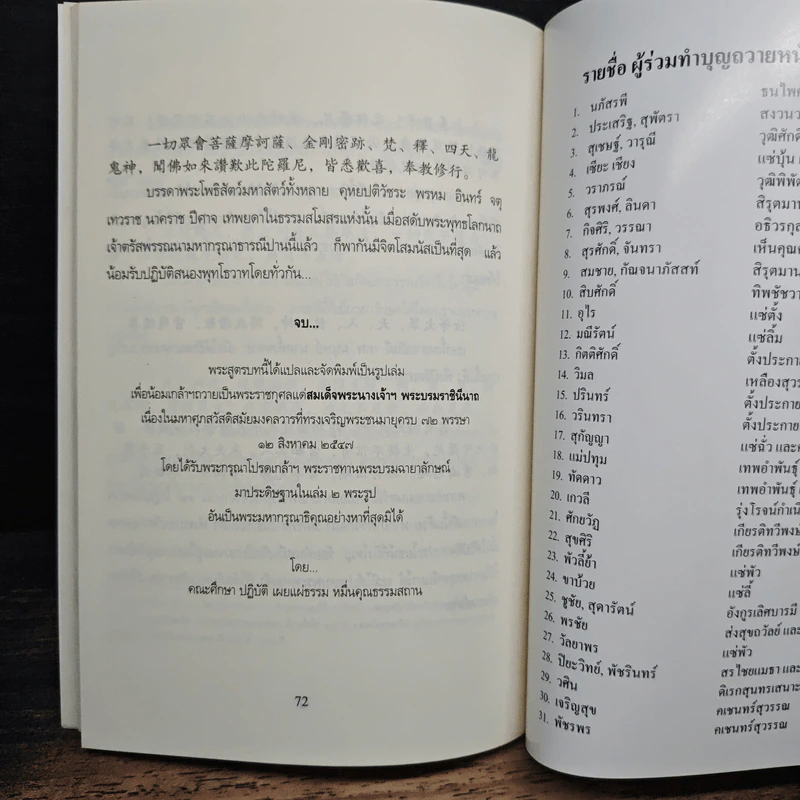 一切眾會菩薩摩訶薩、金剛密跡、梵、釋、四天、龍
鬼神，聞佛如來讚歎此陀羅尼，皆悉歡喜，奉教修行。
บรรดาพระโพธิสัตว์มหาสัตว์ทั้งหลาย คุหยปติวัชระ พรหม อินทร์ จตุ
เทวราช นาคราช ปีศาจ เทพยดาในธรรมสโมสรแห่งนั้น เมื่อสดับพระพุทธโลกนาถ
เจ้าตรัสพรรณนามหากรุณาธารณีปานนี้แล้ว ก็พากันมีจิตโสมนัสเป็นที่สุด แล้ว
น้อมรับปฏิบัติสนองพุทโธวาทโดยทั่วกัน...
จบ...
พระสูตรบทนี้ได้แปลและจัดพิมพ์เป็นรูปเล่ม
เพื่อน้อมเกล้าฯถวายเป็นพระราชกุศลแด่สมเด็จพระนางเจ้าฯ พระบรมราชินีนาถ
เนื่องในมหาศุภสวัสดิสมัยมงคลวารที่ทรงเจริญพระชนมายุครบ ๗๒ พรรษา
๑๒ สิงหาคม ๒๕๔๗
โดยได้รับพระกรุณาโปรดเกล้าฯ พระราชทานพระบรมฉายาลักษณ์
มาประดิษฐานในเล่ม ๒ พระรูป
อันเป็นพระมหากรุณาธิคุณอย่างหาที่สุดมิได้
โดย...
คณะศึกษา ปฏิบัติ เผยแผ่ธรรม หมื่นคุณธรรมสถาน
72
รายชื่อ ผู้ร่วมทำบุญถวายหน
1. นภัสรพี ธนไพศ
2. ประเสริฐ, สุพัตรา สงวนว
3. สุเชษฐ์, วารุณี วุฒิศักดิ์
4. เซียะ เชียง แซ่บุ้น
5. วราภรณ์ วุฒิพิพัต
6. สุรพงศ์, ลินดา สิรุตมาน
7. กิจศิริ, วรรณา อธิวรกุล
8. สุรศักดิ์, จันทรา เห็นคุณค
9. สมชาย, กัณจนาภัสสท์ สิรุตมาน
10. สิบศักดิ์ ทิพชัชวา
11. อุไร แซ่ตั้ง
12. มณีรัตน์ แซ่ลิ้ม
13. กิตติศักดิ์ ตั้งประกา
14. วิมล เหลืองสุว
15. ปรินทร์ ตั้งประกาย
16. วรินทรา ตั้งประกาย
17. สุกัญญา แซ่ฉั่ว และค
18. แม่ปทุม เทพอำพันธุ์
19. ทัดดาว เทพอำพันธุ์
20. เกวลี รุ่งโรจน์กำเนิ
21. ศักยวัฏ เกียรติทวีพงษ์
22. สุขศิริ เกียรติทวีพงษ์
23. พัวลี้ย้า แซ่พัว
24. ขาบ้วย แซ่ลี้
25. ชูชัย, สุดารัตน์ อังกูรเลิศบารมี
26. พรชัย ส่งสุขถวัลย์ และ
27. วัลยาพร แซ่พัว
28. ปิยะวิทย์, พัชรินทร์ สรไชยเมธา และ
29. วศิน ดิเรกสุนทรเสนาะ
30. เจริญสุข คเชนทร์สุวรรณ
31. พัชรพร คเชนทร์สุวรรณ